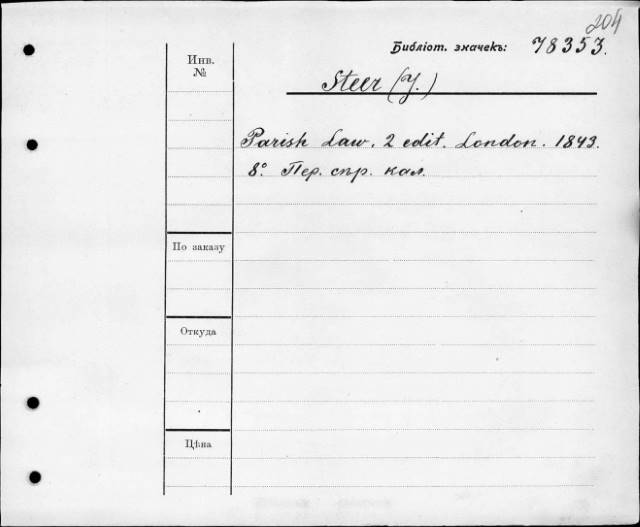 204
Библіот. значекъ: 78353.
Инв.
№
Steer (J.)
Parish Law. 2 edit. London. 1843.
8º. Пер. спр. кал.
По заказу
Откуда
Цѣна